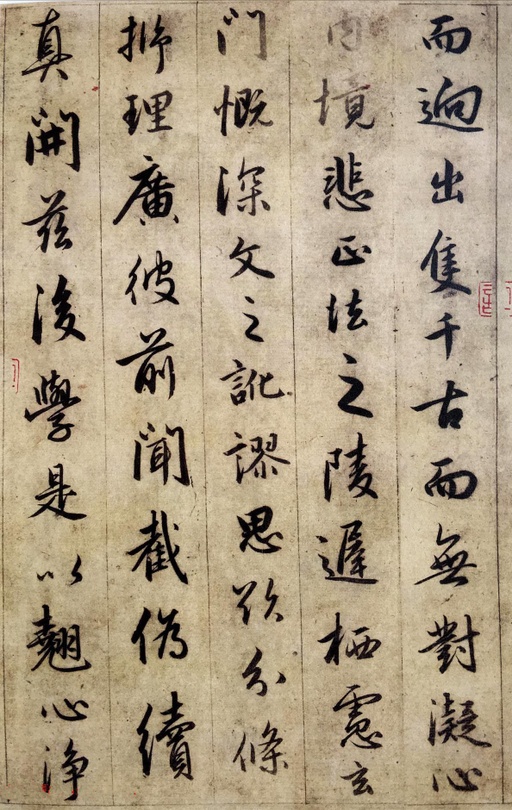 而迥出隻千古而無對凝心
内境悲正法之陵遲栖慮玄
門慨深文之訛謬思欲分條
㭊理廣彼前聞截偽續
真開茲後學是以翹心淨